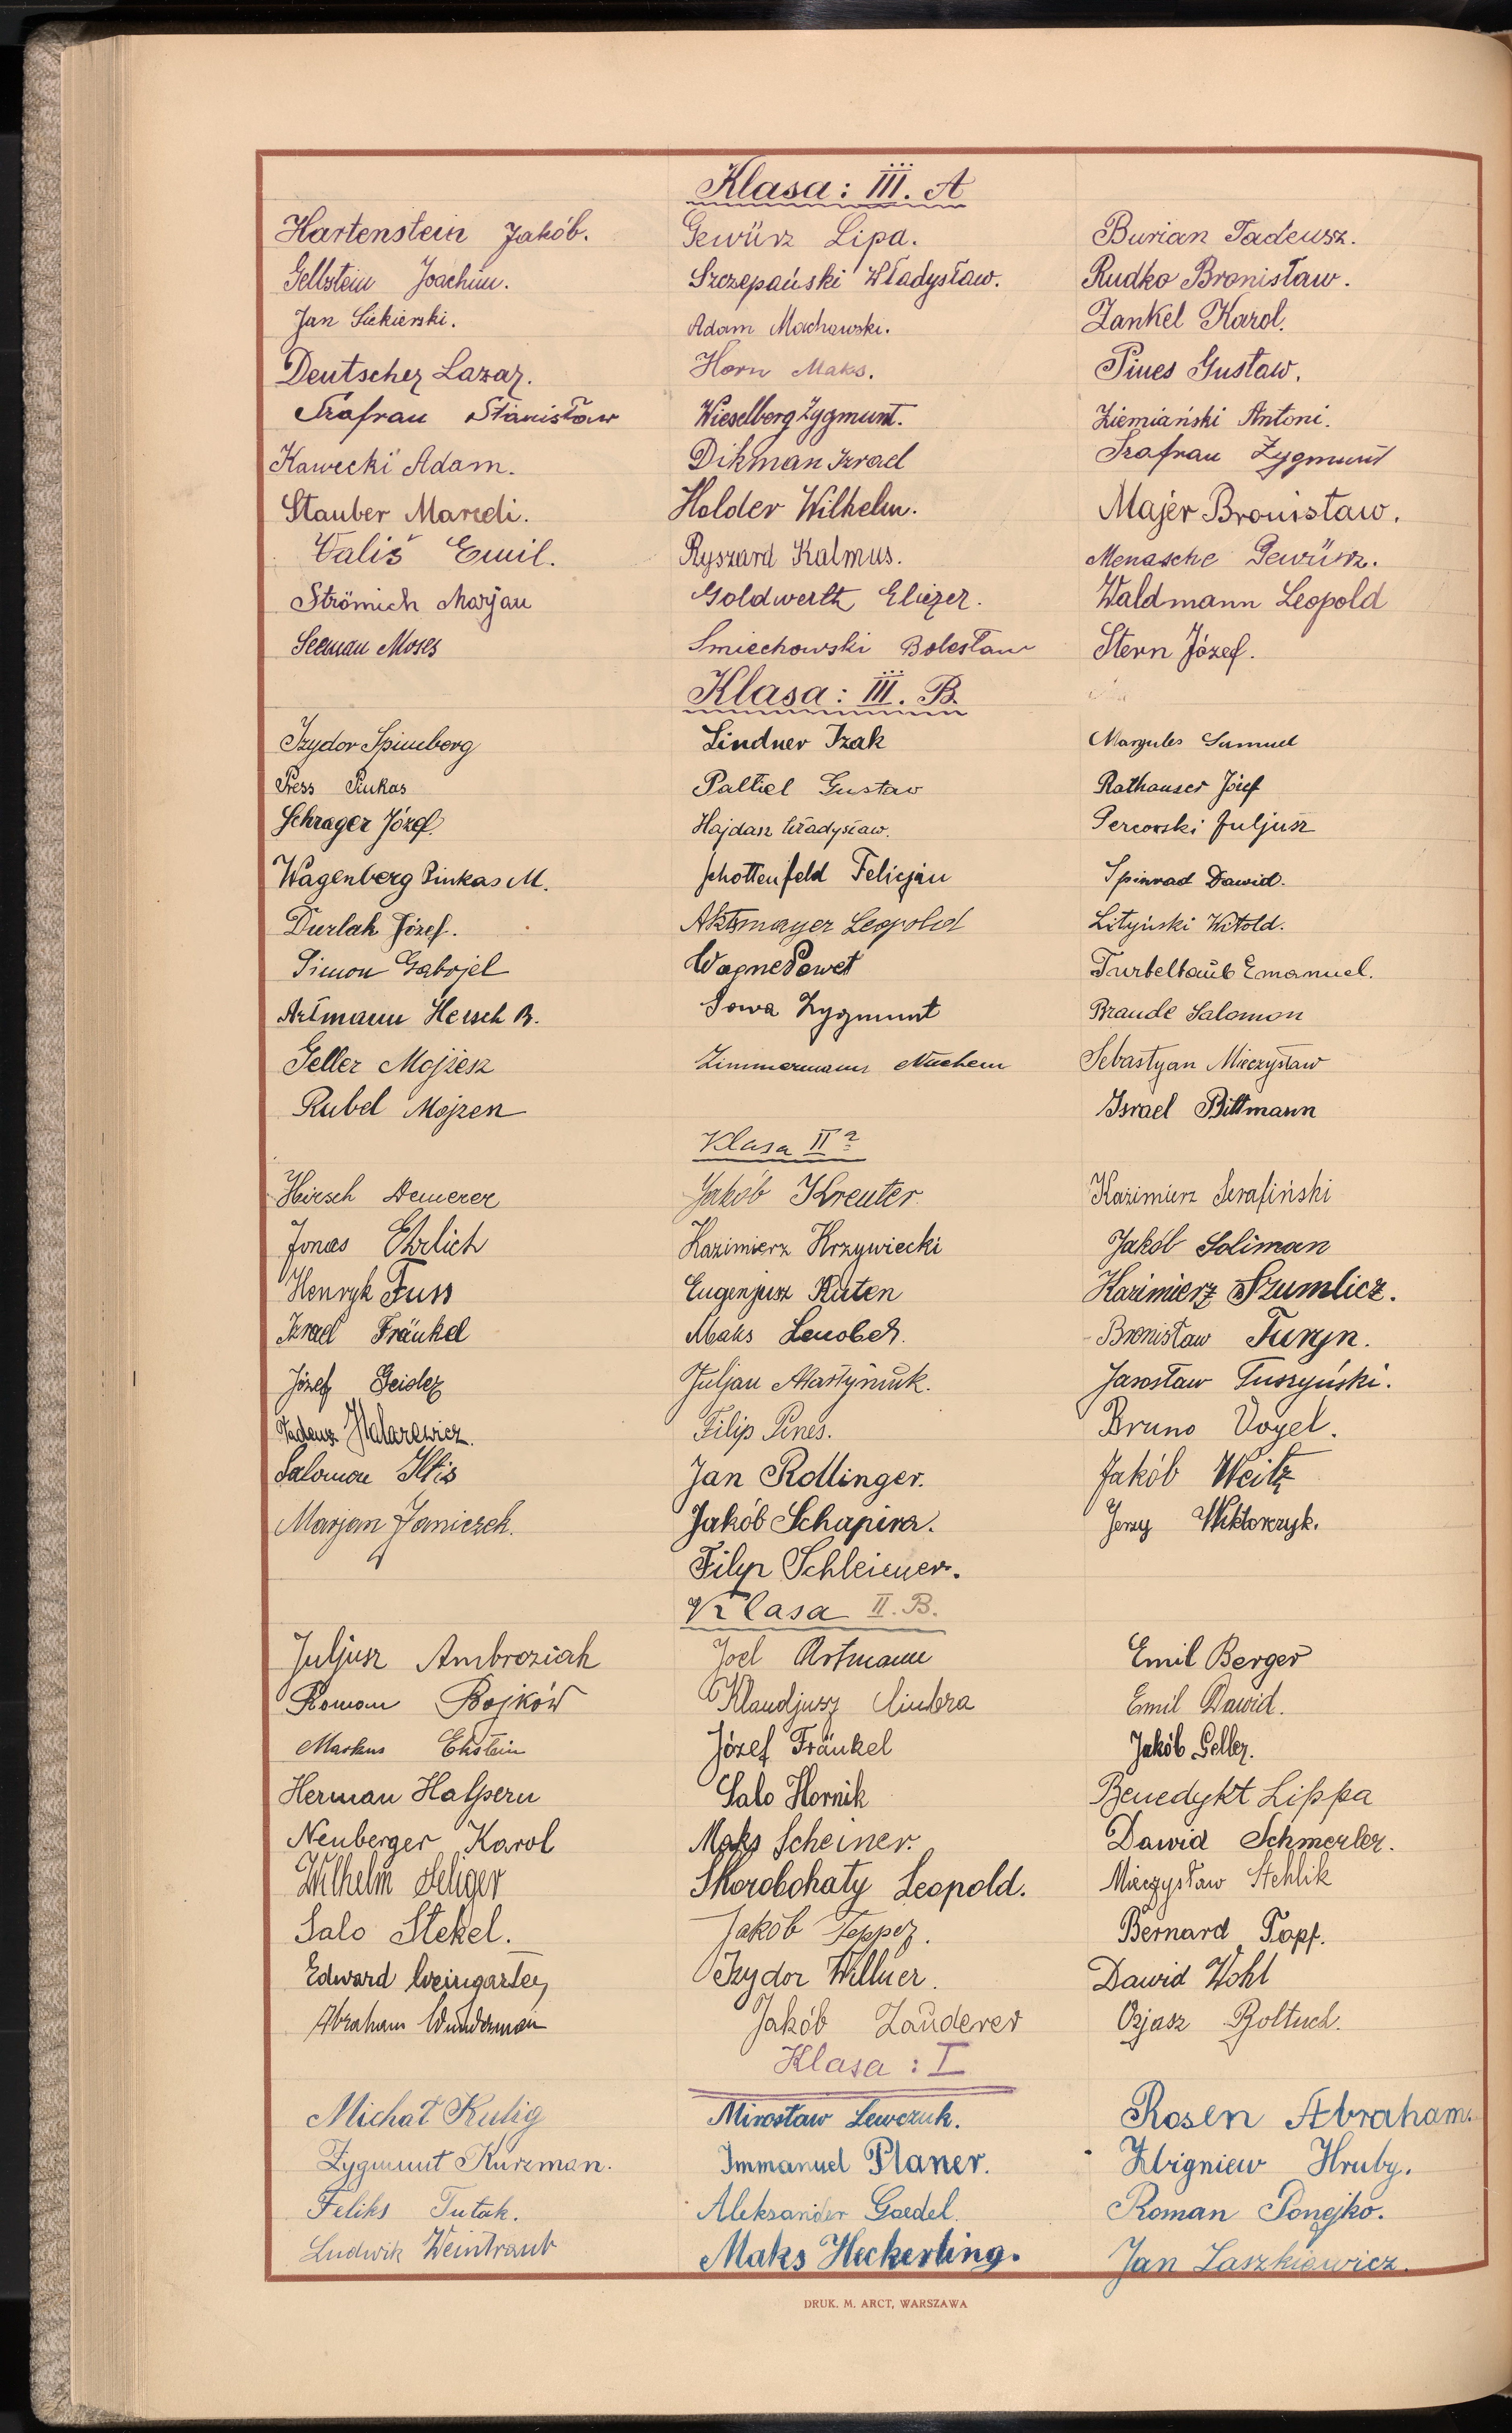 Klasa: III. A
Hartenstein Jakób. Gewürz Lipa. Burian Tadeusz.
Gelbstein Joachim. Szczepański Władysław. Rudko Bronisław.
Jan Siekierski. Adam Machowski. Zankel Karol.
Deutscher Lazar. Horn Maks. Pines Gustaw.
Szafran Stanisław Wieselberg Zygmunt. Ziemiański Antoni.
Kawecki Adam. Dikman Izrael Szafran Zygmunt
Stauber Maredi. Holder Wilhelm. Majer Bronisław.
Vališ Emil. Ryszard Kalmus. Menasche Gewürz.
Strömich Marjan Goldwerth Eliezer. Waldmann Leopold
Seeman Moses Smiechowski Bolesław Stern Józef.
Klasa: III. B.
Izydor Spinberg Lindner Izak Margules Samuel
Press Pinkas Paltiel Gustaw Rathauser Józef
Schrager Józef. Hajdasz Władysław. Percowski Juljusz
Wagenberg Pinkas M. Schottenfeld Felicjan Spinrad Dawid.
Durlak Józef. Aktsmayer Leopold Lityński Witold.
Simon Gabrjel Wagner Paweł Turbeltaub Emanuel.
Artmann Hersch B. Sowa Zygmunt Braude Salomon
Geller Mojżesz Zimmermann Nuchem Sebastyan Mieczysław
Rubel Mojżesz Israel Bittmann
Klasa II a
Hirsch Demerer Jakób Kreuter Kazimierz Serafiński
Jonas Ehrlich Kazimierz Krzywiecki Jakób Soliman
Henryk Fuss Eugenjusz Kuten Kazimierz Szumlicz.
Izrael Fränkel Maks Lenobel. Bronisław Turyn.
Józef Geider Juljan Martyniuk. Jarosław Tuszyński.
Tadeusz Halarewicz. Filip Pines. Bruno Vogel.
Salomon Iltis Jan Rollinger. Jakób Weitz
Marjan Janiczek. Jakób Schapira. Jerzy Wiktorczyk.
Filip Schleicher.
Klasa II. B.
Juljusz Ambroziak Joel Artmann Emil Berger
Roman Bojków Klaudjusz Ciubra Emil Dawid.
Markus Ekstein Józef Fränkel Jakób Geller.
Herman Halpern Salo Hornik Benedykt Lippa
Neuberger Karol Maks Scheiner. Dawid Schmerler.
Wilhelm Seliger Skorobohaty Leopold. Mieczysław Stehlik
Salo Stekel. Jakób Tepper. Bernard Topf.
Edward Weingarten Izydor Willner. Dawid Wohl
Abraham Wunderman Jakób Zauderer Ozjasz Boltuch.
Klasa: I
Michał Kulig Mirosław Lewczuk. Rosen Abraham.
Zygmunt Kurzman. Immanuel Planer. Zbigniew Hruby.
Feliks Tutak. Aleksander Goedel. Roman Ponejko.
Ludwik Weintraub Maks Heckerling. Jan Laszkiewicz.
DRUK. M. ARCT, WARSZAWA